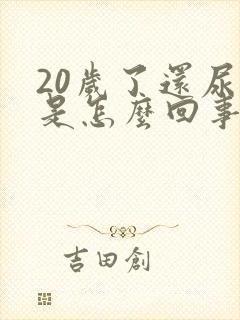 20歲了還尿
是怎麼回事
吉田創